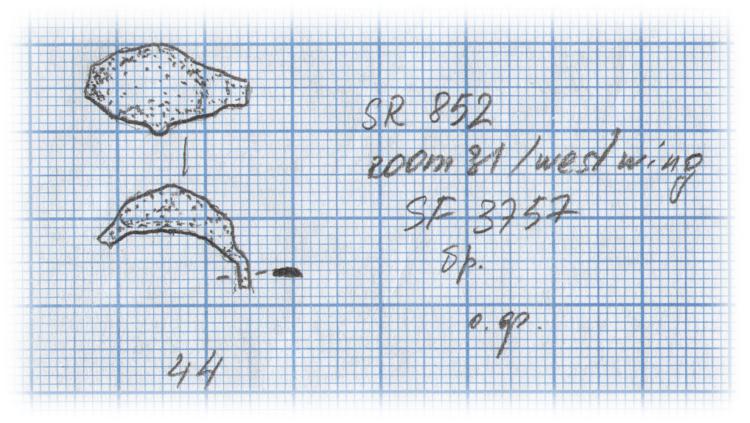 SR 852
room 31 / west wing
SF 3757
бр.
о. др.
44